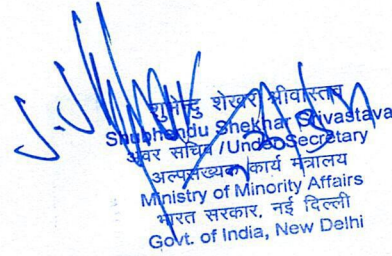 शुभेन्दु शेखर श्रीवास्तव
Shubhendu Shekhar Shrivastava
अवर सचिव /Under Secretary
अल्पसंख्यक कार्य मंत्रालय
Ministry of Minority Affairs
भारत सरकार, नई दिल्ली
Govt. of India, New Delhi